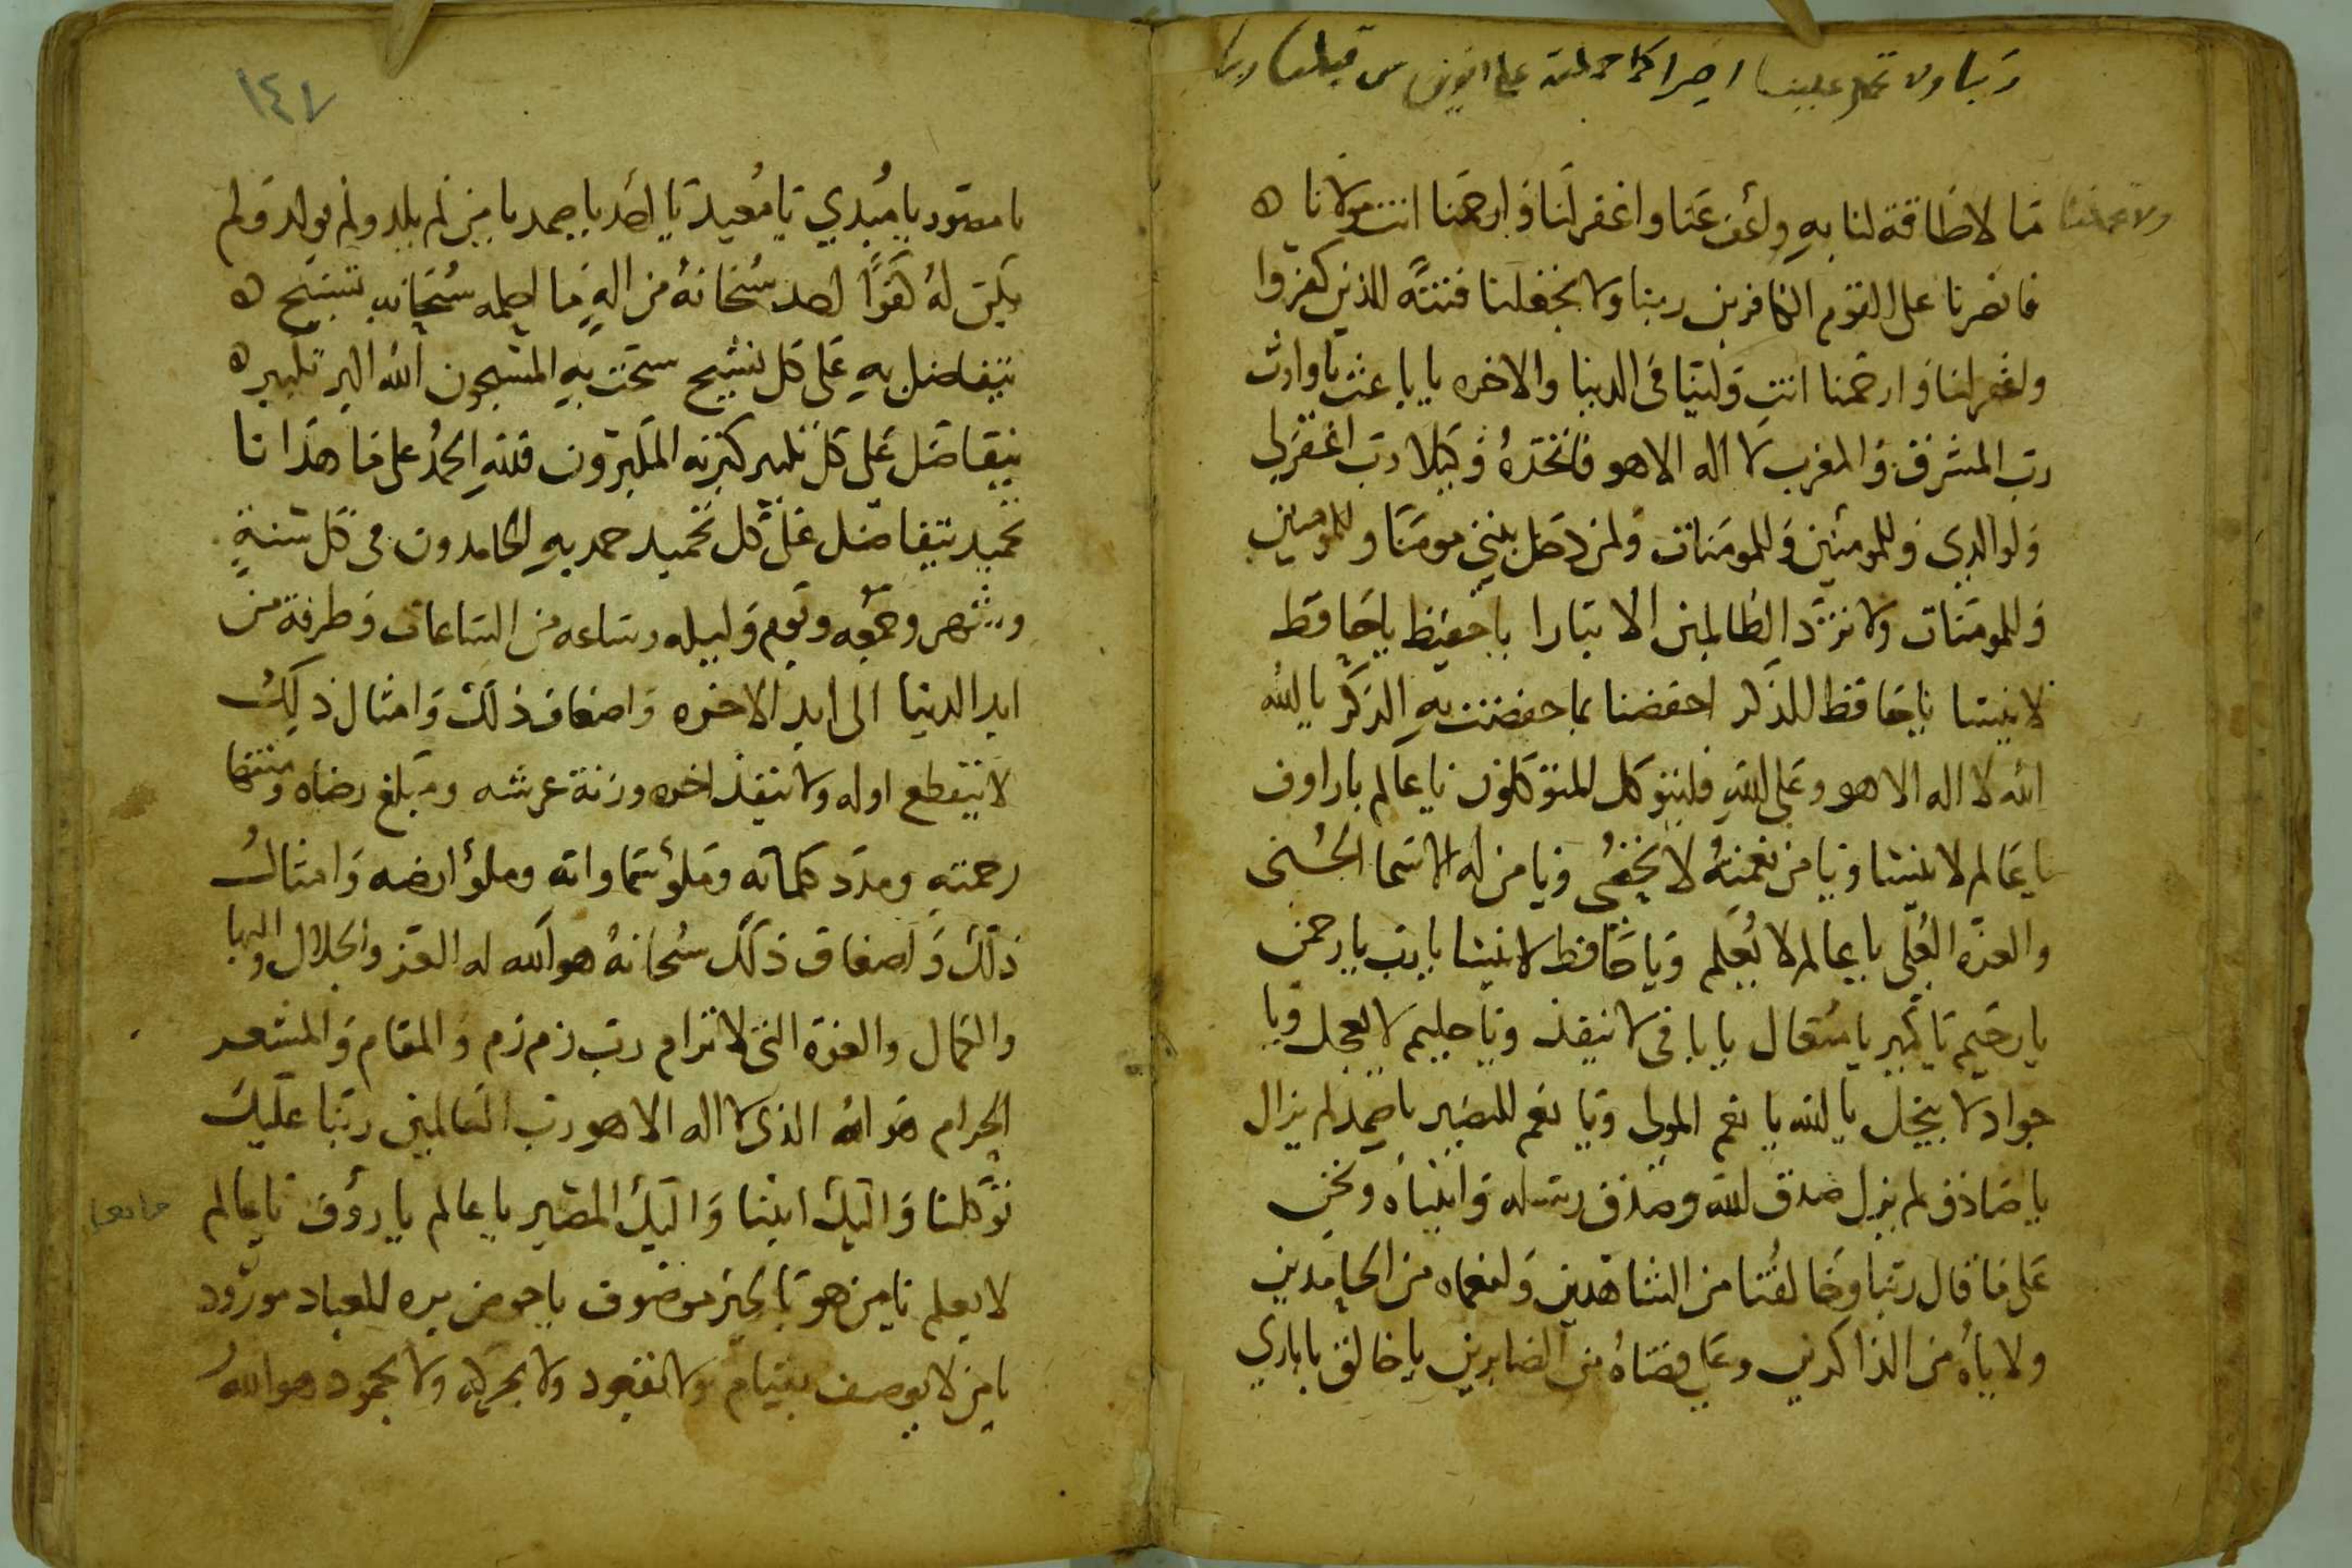 ربنا ولا تحمل علينا اصرا كما حملته على الذين من قبلنا ربنا
ولا تحملنا
ما لا طاقة لنا به واعف عنا واغفر لنا وارحمنا انت مولانا ه
فانصرنا على القوم الكافرين ربنا ولا تجعلنا فتنة للذين كفروا
واغفر لنا وارحمنا انت ولينا في الدنيا والاخره يا باعث يا وارث
رب المشرق والمغرب لا اله الا هو فاتخذه وكيلا رب اغفر لي
ولوالدي وللمومنين وللمومنات ولمن دخل بيتي مومنا وللمومنين
وللمومنات ولا تزد الظالمين الا تبارا يا حفيظ يا حافظ
لا ينسا يا حافظ للذكر احفضنا بما حفضت به الذكر يا لله
الله لا اله الا هو وعلى الله فليتوكل المتوكلون يا عالم يا راوف
يا عالم لا ينسا ويا من نعمته لا تخفى ويا من له الاسما الحسنى
والعزه العلى يا عالم لا يعلم ويا حافظ لا ينسا يا رب يا رحمن
يا رحيم يا كبير يا متعال يا باقى لا ينفذ ويا حليم لا يعجل ويا
جواد لا يبخل يا لله يا نعم المولى ويا نعم النصير يا صمد لم يزال
يا صادق لم يزل صدق الله وصدق رسله وانبياه ونحن
على ما قال ربنا وخالقنا من الشاهدين ولنعماه من الحامدين
ولاياه من الذاكرين وعلى قضاه من الصابرين يا خالق يا باري
١٤٧
يا مصور يا مبدي يا معيد يا احد يا صمد يا من لم يلد ولم يولد ولم
يكن له كفوا احد سبحانه من اله ما احلمه سبحانه تسبيح ه
يتفاضل به على كل تسبيح سبحت به المسبحون الله اكبر تكبير ه
يتفاضل على كل تكبير كبرته المكبرون فلله الحمد على ما هدانا
تحميد يتفاضل على كل تحميد حمد به الحامدون في كل سنة
وشهر وجمعه ويوم وليله وساعه من الساعات وطرفة من
ابد الدنيا الى ابد الاخره واضعاف ذلك وامثال ذلك
لا ينقطع اوله ولا ينفذ اخره وزنة عرشه ومبلغ رضاه ومنتها
رحمته ومدد كلماته وملؤ سماواته وملؤ ارضه وامثال
ذلك واضعاف ذلك سبحانه هو الله له العز والجلال والبها
والكمال والعزة التي لا ترام رب زم زم والمقام والمشعر
الحرام هو الله الذى لا اله الا هو رب العالمين ربنا عليك
توكلنا واليك انبنا واليك المصير يا عالم يا رؤف يا عالم
لا يعلم يا من هو بالخير موصوف يا من بره للعباد مورود
يا من لا يوصف بقيام ولا بقعود ولا بحركه ولا بجمود هو الله